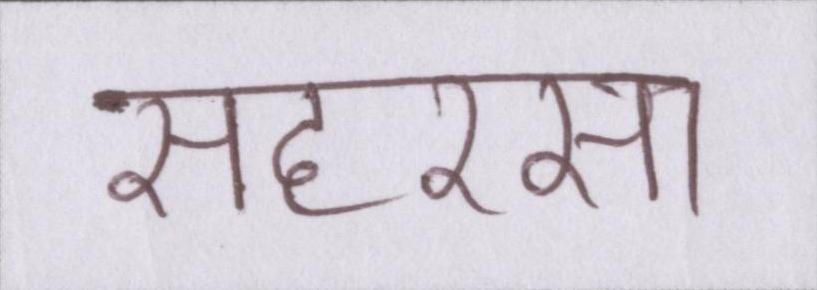 सहरसा